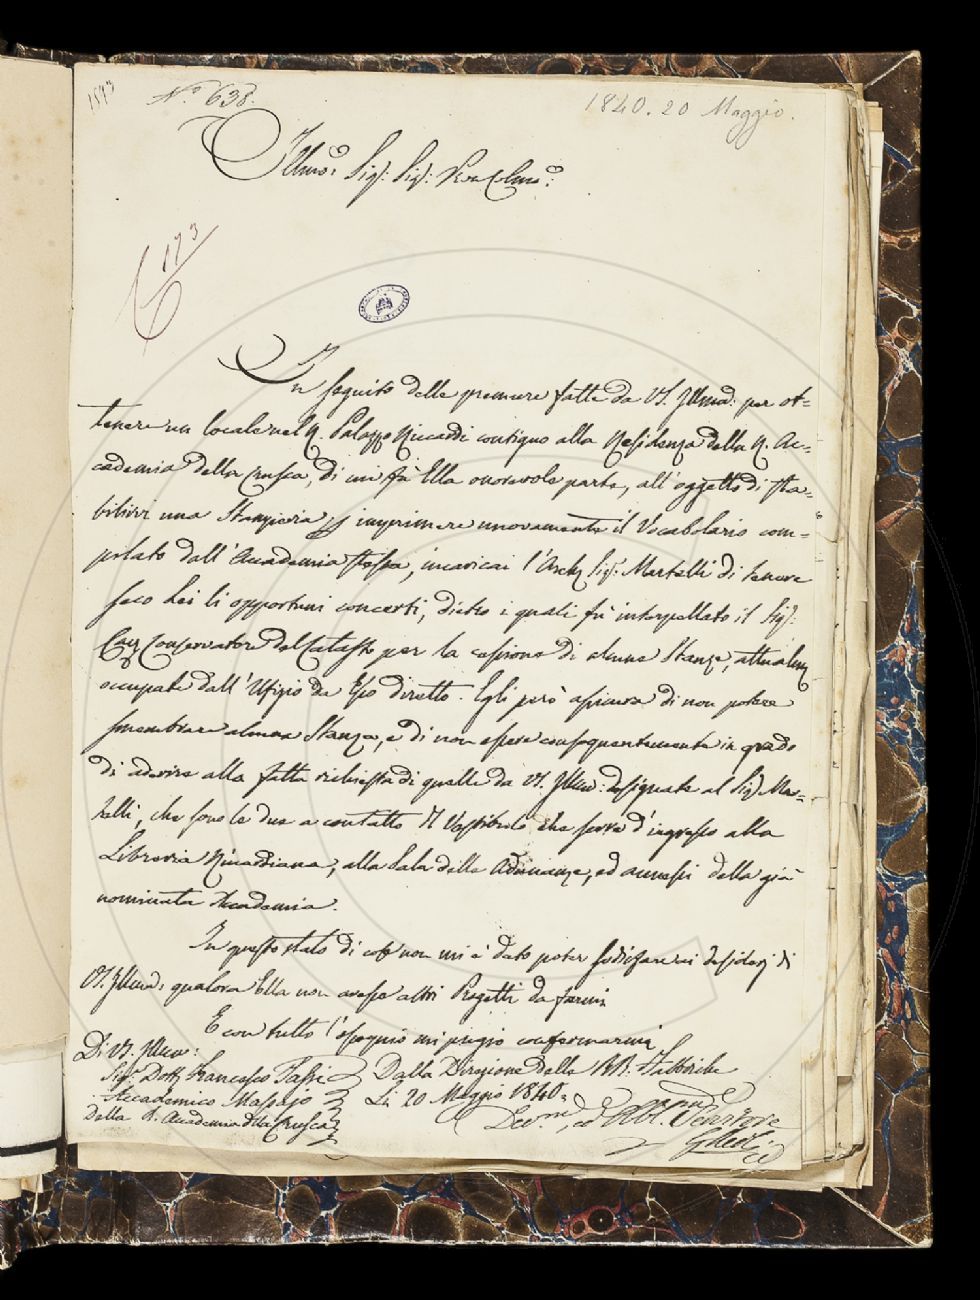 1593
N.° 638.
1840. 20 Maggio.
Illmo: Sig: Sig: Pron Colmo:
173
In seguito delle premure fatte da VS. Illma: per ot=
tenere un locale nel R. Palazzo Riccardi contiguo alla Residenza della R. Ac=
cademia della Crusca, di cui fà Ella onorevole parte, all'oggetto di sta=
bilirvi una Stamperia p imprimere nuovamente il Vocabolario com=
pilato dall'Accademia stessa, incaricai l'Arch: Sig: Martelli di tenere
seco Lei li opportuni concerti, dietro i quali fù interpellato il Sig:
Cav: Conservatore del Catasto per la cessione di alcune Stanze, attualm:
occupate dall'Ufizio da Esso diretto. Egli però assicura di non potere
smembrare alcuna Stanza, e di non essere conseguentemente in grado
di aderire alla fatta richiesta di quelle da VS. Illma: designate al Sig: Mar=
telli, che sono le due a contatto il Vestibolo che serve d'ingresso alla
Libreria Riccardiana, alla Sala delle Adunanze, ed annessi della già
nominata Accademia.
In questo stato di cose non mi è dato poter sodisfare ai desiderj di
VS. Illma: qualora Ella non avesse altri Progetti da farmi
E con tutto l'ossequio mi pregio confermarmi
Di VS. Illma:
Sig: Dott: Francesco Tassi
Accademico Massajo
della R. Accademia della Crusca
Dalla Direzione delle RR. Fabbriche
Li 20 Maggio 1840.
Dev.mo, ed Obb. Servitore